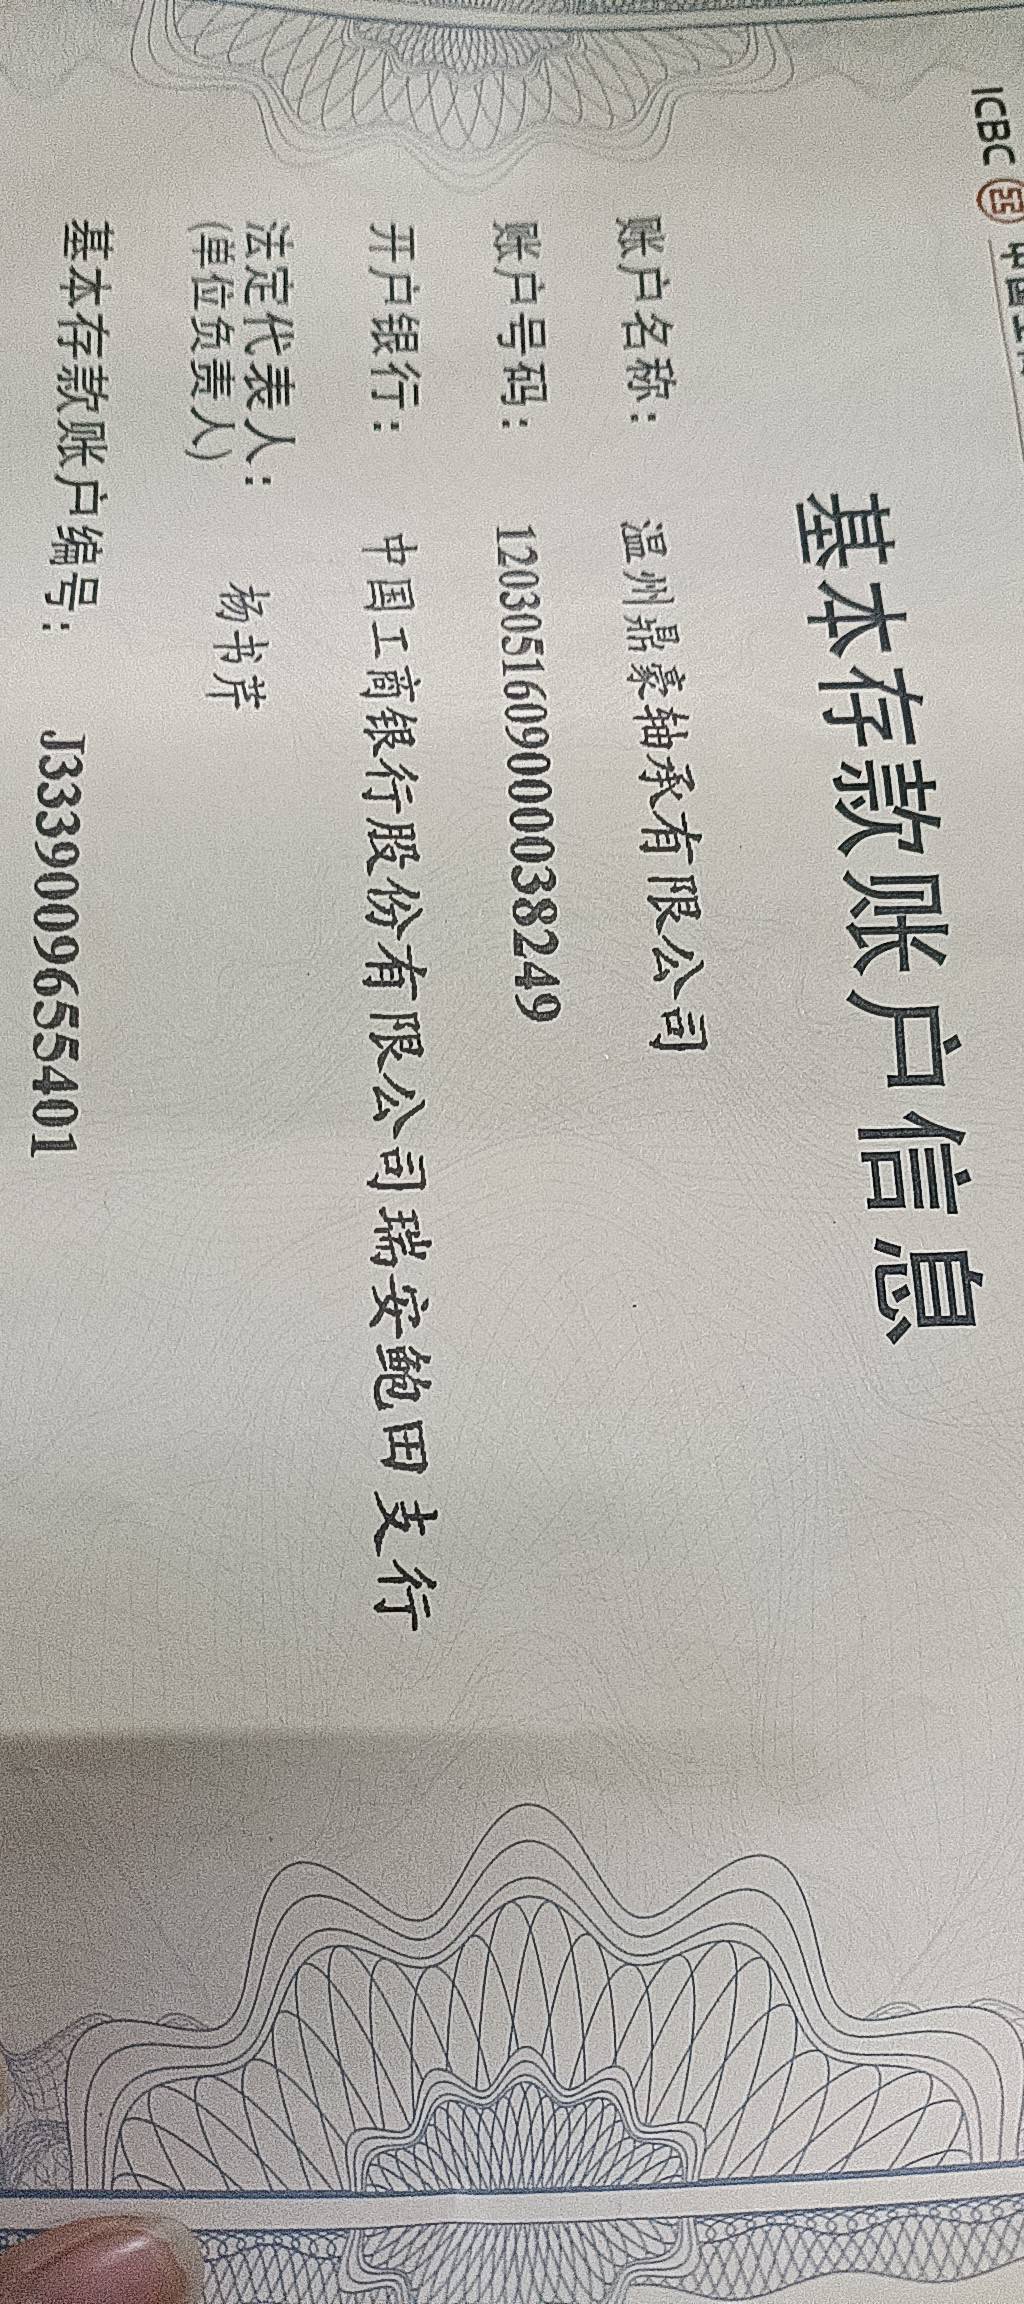 ICBC 中国工
基本存款账户信息
账户名称： 温州鼎豪轴承有限公司
账户号码： 1203051609000038249
开户银行： 中国工商银行股份有限公司瑞安鲍田支行
法定代表人： 杨书芹
(单位负责人)
基本存款账户编号： J3339009655401